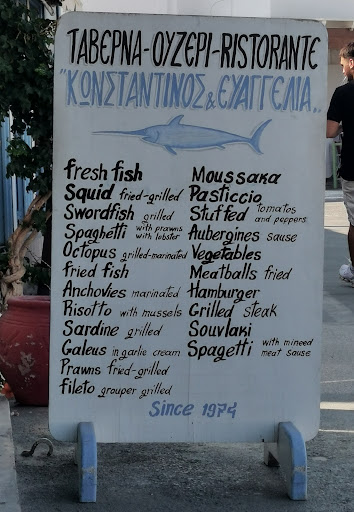 ΤΑΒΕΡΝΑ-ΟΥΖΕΡΙ-RISTORANTE
"ΚΩΝΣΤΑΝΤΙΝΟΣ & ΕΥΑΓΓΕΛΙΑ„
fresh fish
Squid fried-grilled
Swordfish grilled
Spaghetti with prawns
with lobster
Octopus grilled-marinated
fried fish
Anchovies marinated
Risotto with mussels
Sardine grilled
Galeus in garlic cream
Prawns fried-grilled
fileto grouper grilled
Moussaka
Pasticcio
Stuffed tomatos
and peppers
Aubergines sause
Vegetables
Meatballs fried
Hamburger
Grilled steak
Souvlaki
Spagetti with mineed
meat sause
Since 1974